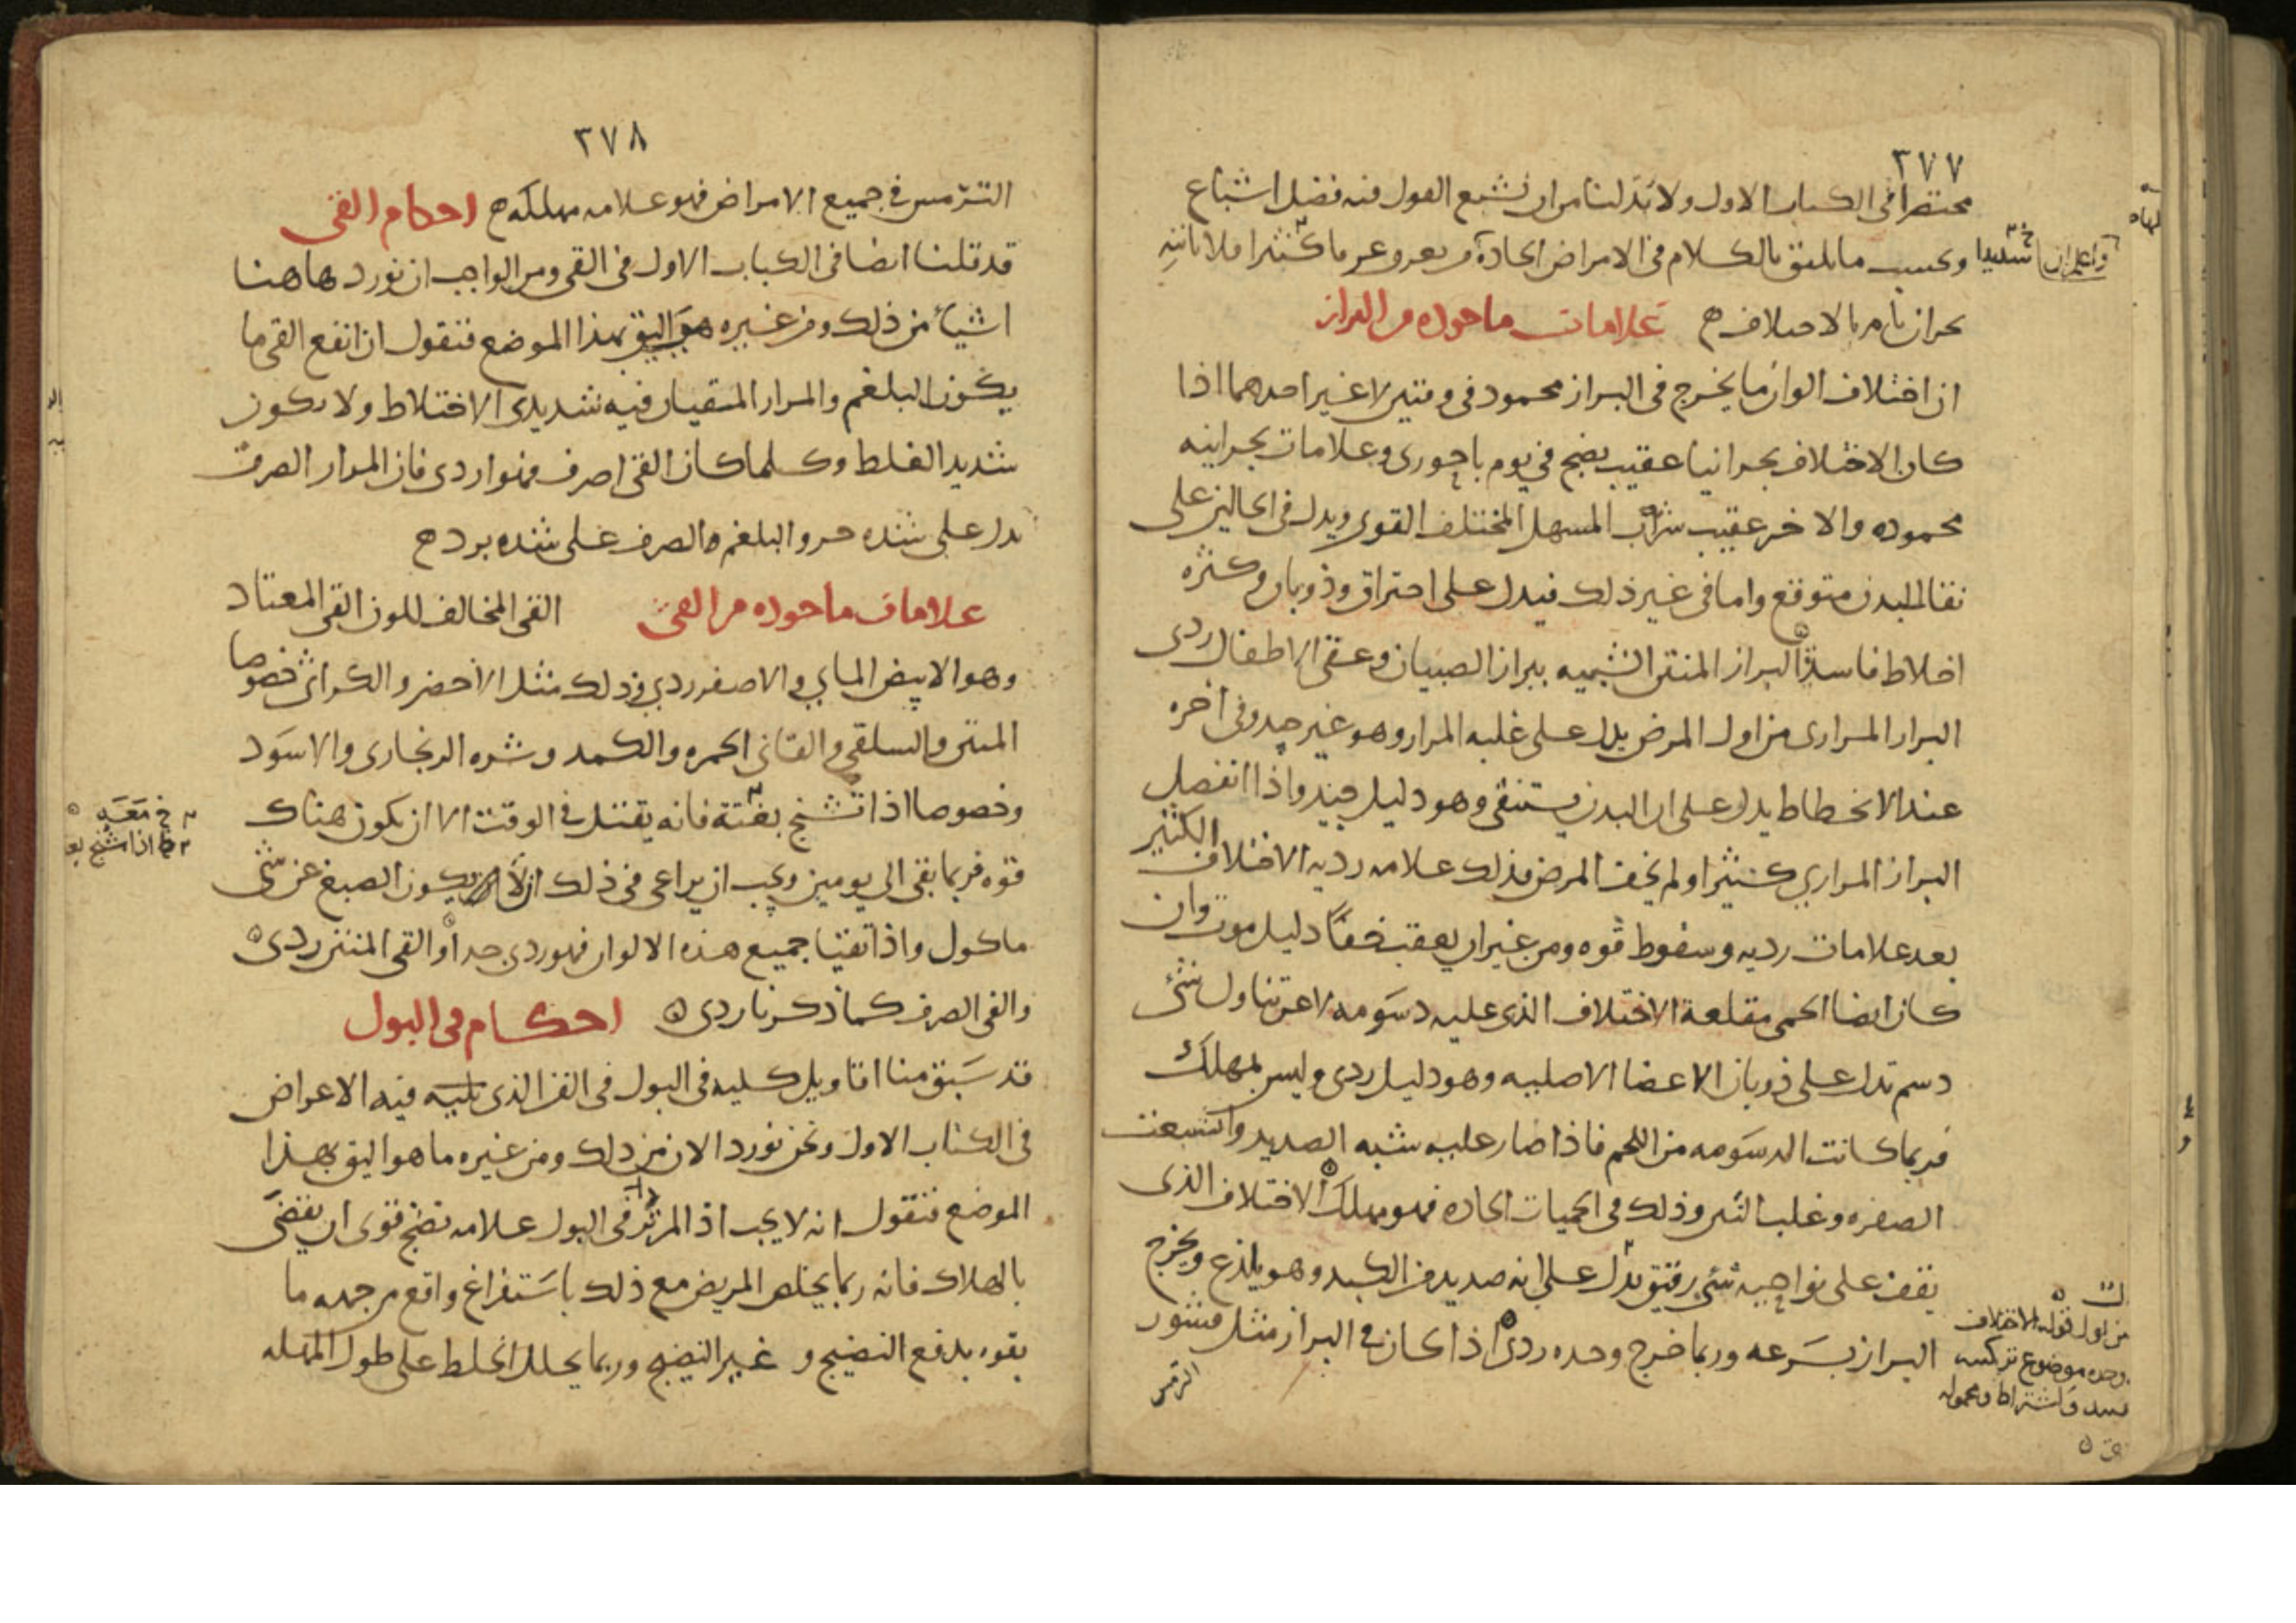 ٣٧٧
مختصرا فى الكتاب الاول ولا بد لنا من ان نشبع القول فيه فضل اشباع
واعلم ان
شديدا وبحسب ما يليق بالكلام فى الامراض الحادة ومن عرق عرقا كثيرا فلا ياتيه
بحران تام بالاختلاف علامات ماخوذه من البراز
ان اختلاف الوان ما يخرج فى البراز محمود فى وقتين لا غير احدهما اذا
كان الاختلاف بحرانيا عقيب نضج فى يوم باحورى وعلامات بحرانيه
محموده والاخر عقيب شرب المسهل المختلف القوى ويدل فى الحالين على
نقا للبدن متوقع واما فى غير ذلك فيدل على احتراق وذوبان وكثره
اخلاط فاسدة البراز المنتن الشبيه ببراز الصبيان وعقى الاطفال ردى
البراز المرارى من اول المرض يدل على غلبه المرار وهو غير جيد وفى اخره
عند الانحطاط يدل على ان البدن يستنقى وهو دليل جيد واذا انفصل
البراز المرارى كثيرا ولم يخف المرض فذلك علامه رديه الاختلاف الكثير
بعد علامات رديه وسقوط قوه ومن غير ان يعقب خفا دليل موت وان
كان ايضا الحمى مقلعة الاختلاف الذى عليه دسومه لا عن تناول شئ
دسم تدل على ذوبان الاعضا الاصليه وهو دليل ردى وليس بمهلك
فربما كانت الدسومه من اللحم فاذا صار عليه شبه الصديد واشبعت
الصفره وغلب النتن وذلك فى الحميات الحاده فهو مهلك الاختلاف الذى
يقف على نواحيه شئ رقيق تدل على انه صديد من الكبد وهو يلذع ويخرج
البراز بسرعه وربما خرج وحده ردى اذا كان فى البراز مثل قشور
الترمس
من اول قوله الاختلاف
٣٧٨
الترمس فى جميع الامراض فهو علامه مهلكه احكام القى
قد قلنا ايضا فى الكتاب الاول فى القى ومن الواجب ان نورد هاهنا
اشياء من ذلك ومن غيره هو اليق بهذا الموضع فنقول ان انفع القى ما
يكون البلغم والمرار المتقيان فيه شديدى الاختلاط ولا يكون
شديد الغلظ وكلما كان القى اصرف فهو اردى فان المرار الصرف
يدل على شده حر والبلغم الصرف على شده برد
علامات ماخوذه من القى القى المخالف للون القى المعتاد
وهو الابيض المايى والاصفر ردى وذلك مثل الاخضر والكراثى خصوصا
المنتن والسلقى والقانى الحمره والكمد وشره الزنجارى والاسود
وخصوصا اذا تشنج بغتة فانه يقتل فى الوقت الا ان يكون هناك
قوه فربما بقى الى يومين ويجب ان يراعى فى ذلك ان لا يكون الصبغ عن شئ
ماكول واذا تقيا جميع هذه الالوان فهو ردى جدا والقى المنتن ردى
والقى الصرف كما ذكرنا ردى احكام فى البول
قد سبق منا اقاويل كليه فى البول فى الفن الذى بينا فيه الاعراض
فى الكتاب الاول ونحن نورد الان من ذلك ومن غيره ما هو اليق بهذا
الموضع فنقول انه لا يجب اذا لم تر فى البول علامه نضج قوى ان يقضى
بالهلاك فانه ربما يخلص المريض مع ذلك باستفراغ واقع من جهه ما
بقوه يدفع النضيج وغير النضيج وربما يحلل الخلط على طول المهله